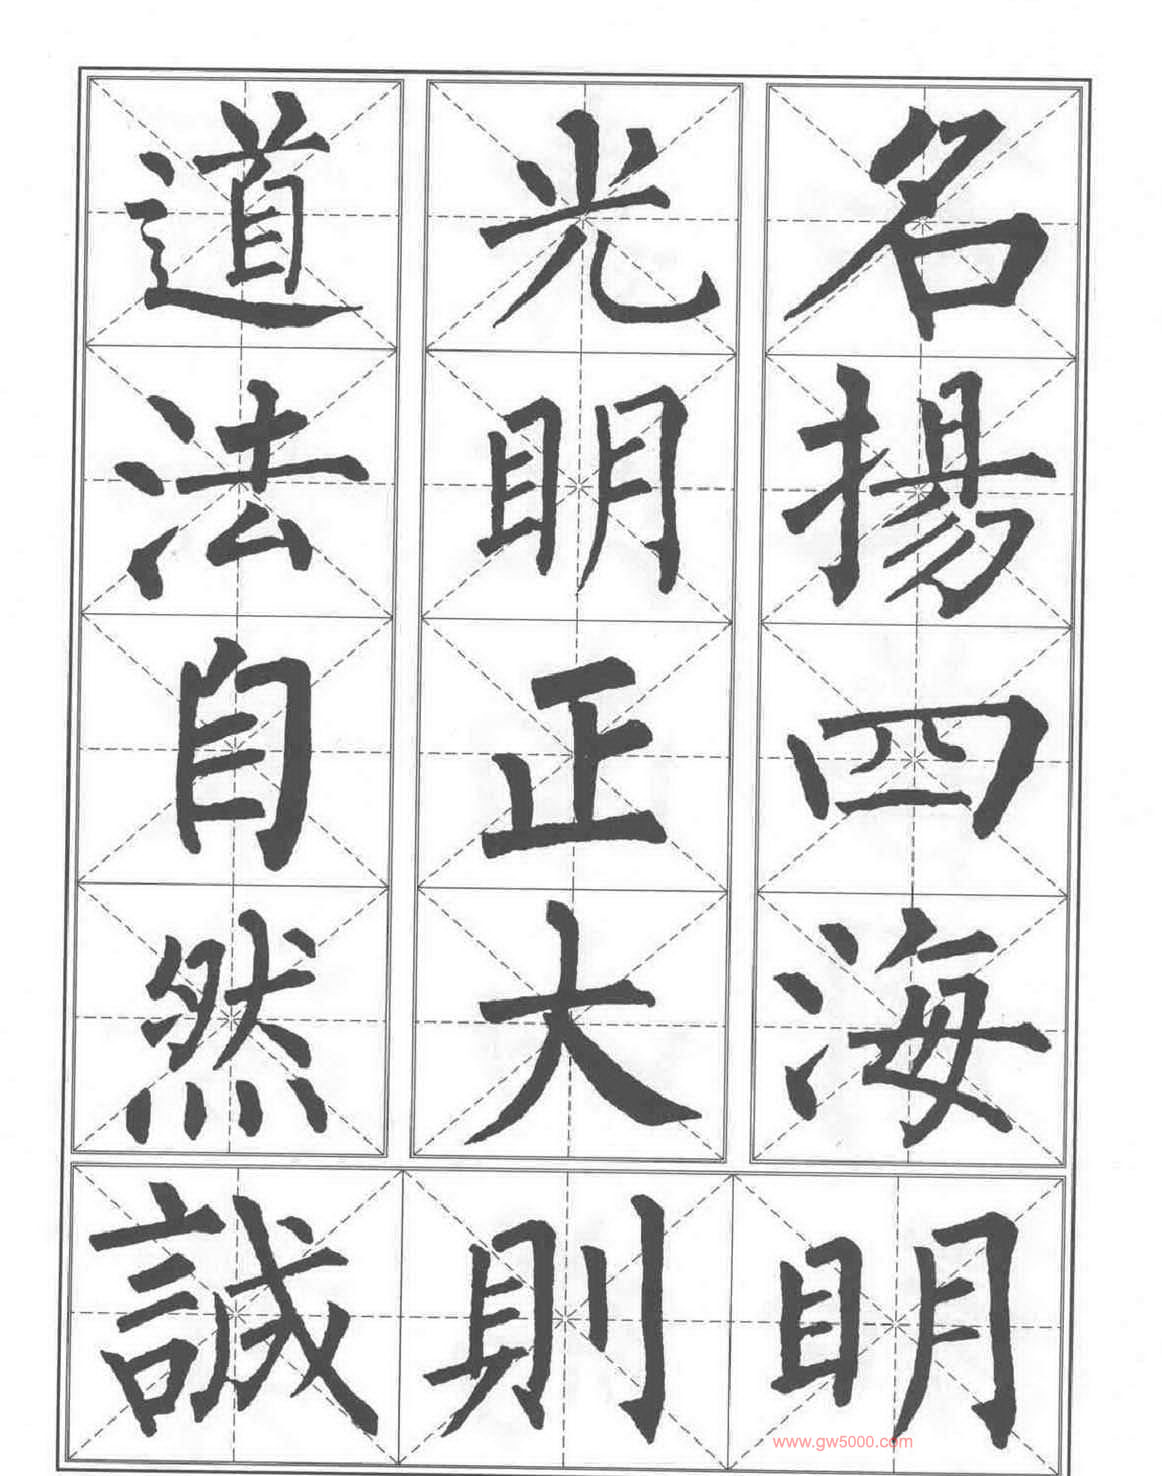 名揚四海
光明正大
道法自然
誠則明
www.gw5000.com